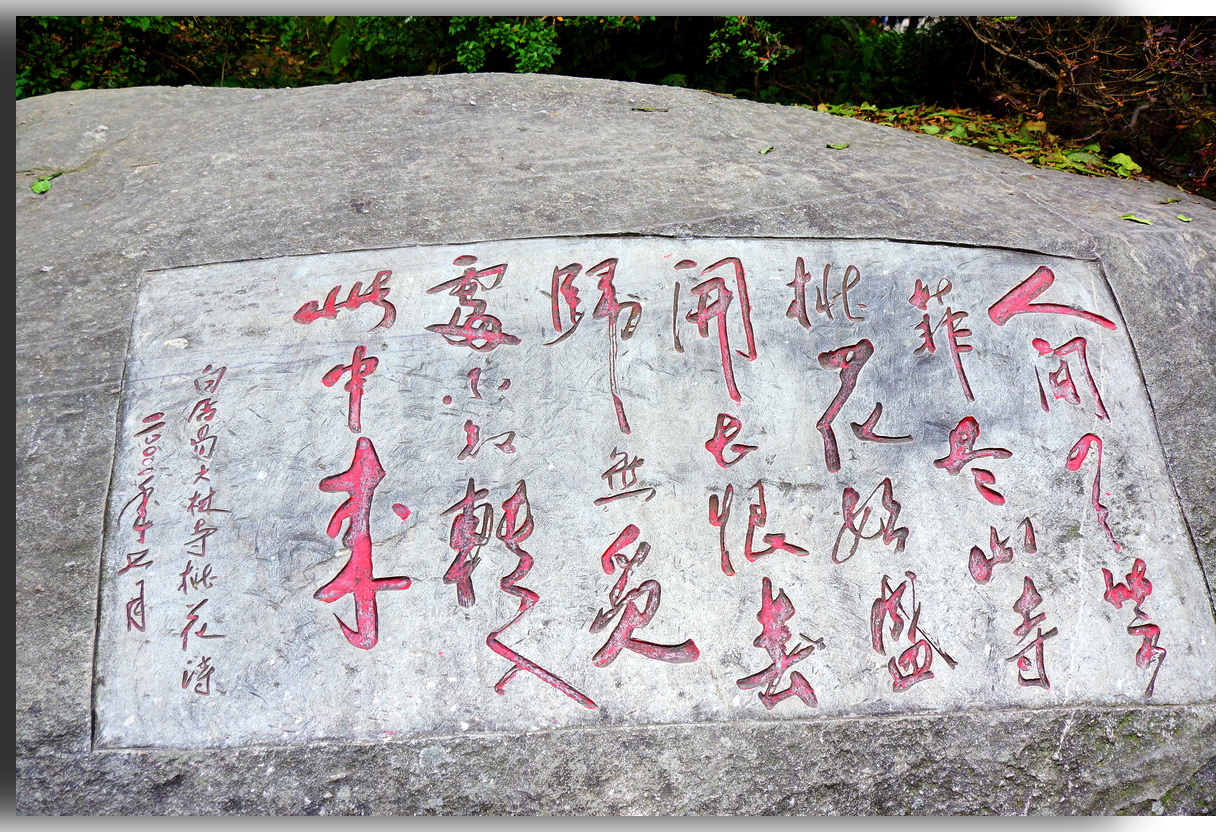 人間四月芳
菲尽山寺
桃花始盛
開长恨春
歸無覓
處不知轉入
此中来
白居易大林寺桃花诗
二〇〇二年十二月